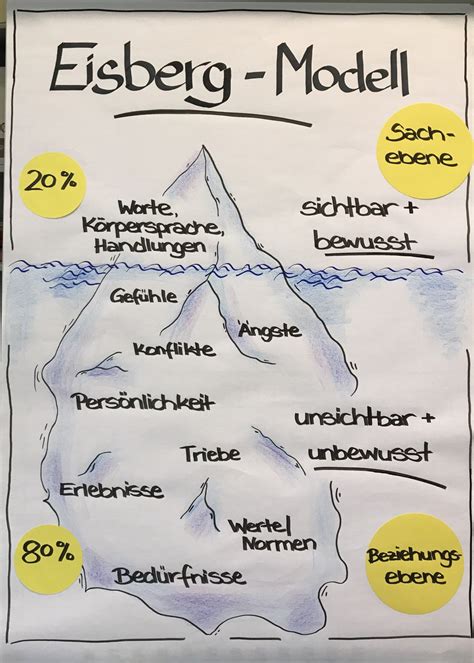 Eisberg-Modell
Sach-
ebene
20%
Worte,
Körpersprache,
Handlungen
sichtbar +
bewusst
Gefühle
Ängste
Konflikte
Persönlichkeit
unsichtbar +
unbewusst
Triebe
Erlebnisse
Werte/
Normen
80%
Beziehungs-
ebene
Bedürfnisse